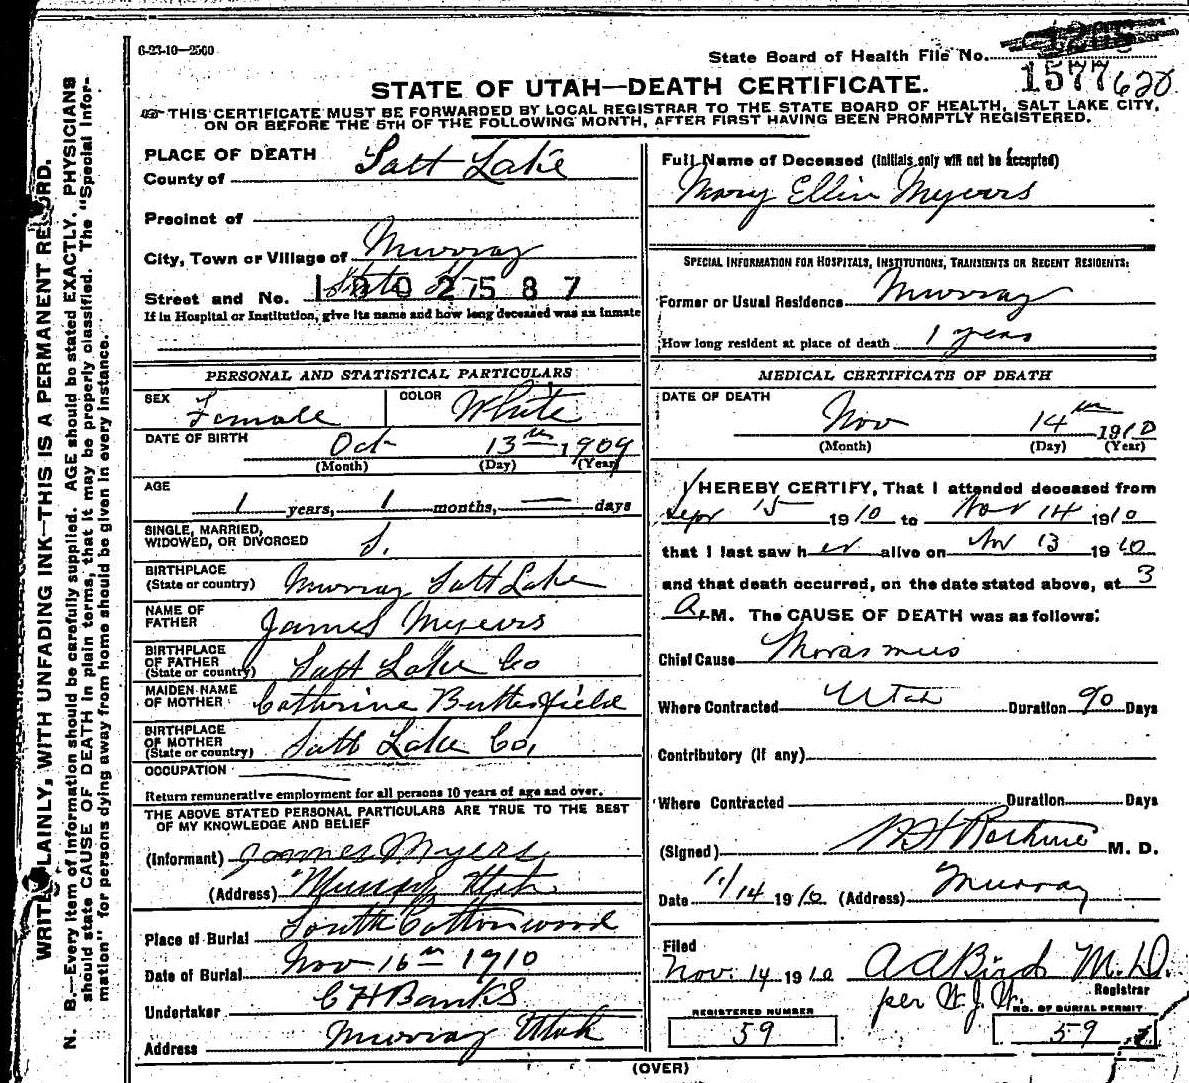 6-23-10—2500
State Board of Health File No.
1577 620
STATE OF UTAH—DEATH CERTIFICATE.
THIS CERTIFICATE MUST BE FORWARDED BY LOCAL REGISTRAR TO THE STATE BOARD OF HEALTH, SALT LAKE CITY,
ON OR BEFORE THE 5TH OF THE FOLLOWING MONTH, AFTER FIRST HAVING BEEN PROMPTLY REGISTERED.
WRITE PLAINLY, WITH UNFADING INK—THIS IS A PERMANENT RECORD.
N. B.—Every item of information should be carefully supplied. AGE should be stated EXACTLY. PHYSICIANS
should state CAUSE OF DEATH in plain terms, that it may be properly classified. The "Special Infor-
mation" for persons dying away from home should be given in every instance.
PLACE OF DEATH
County of Salt Lake
Precinct of
City, Town or Village of Murray
Street and No. State St 1002587
If in Hospital or Institution, give its name and how long deceased was an inmate
PERSONAL AND STATISTICAL PARTICULARS
SEX Female COLOR White
DATE OF BIRTH Oct 13th 1909
(Month) (Day) (Year)
AGE
1 years, 1 months, — days
SINGLE, MARRIED,
WIDOWED, OR DIVORCED S.
BIRTHPLACE
(State or country) Murray Salt Lake
NAME OF
FATHER James Myers
BIRTHPLACE
OF FATHER
(State or country) Salt Lake Co
MAIDEN NAME
OF MOTHER Catherine Butterfield
BIRTHPLACE
OF MOTHER
(State or country) Salt Lake Co,
OCCUPATION
Return remunerative employment for all persons 10 years of age and over.
THE ABOVE STATED PERSONAL PARTICULARS ARE TRUE TO THE BEST
OF MY KNOWLEDGE AND BELIEF
(Informant) James Myers
(Address) Murray Utah
Place of Burial South Cottonwood
Date of Burial Nov 16th 1910
Undertaker C H Banks
Address Murray Utah
Full Name of Deceased (Initials only will not be accepted)
Mary Ellin Myers
SPECIAL INFORMATION FOR HOSPITALS, INSTITUTIONS, TRANSIENTS OR RECENT RESIDENTS:
Former or Usual Residence Murray
How long resident at place of death 1 year
MEDICAL CERTIFICATE OF DEATH
DATE OF DEATH
Nov 14th 1910
(Month) (Day) (Year)
I HEREBY CERTIFY, That I attended deceased from
Sept 15 1910 to Nov 14 1910
that I last saw her alive on Nov 13 1910
and that death occurred, on the date stated above, at 3
A.M. The CAUSE OF DEATH was as follows:
Chief Cause Marasmus
Where Contracted Utah Duration 90 Days
Contributory (if any)
Where Contracted Duration Days
(Signed) M. D.
Date 11/14 1910 (Address) Murray
Filed
Nov. 14 1910 A A Bird M.D.
per Registrar
REGISTERED NUMBER
59
NO. OF BURIAL PERMIT
59
(OVER)